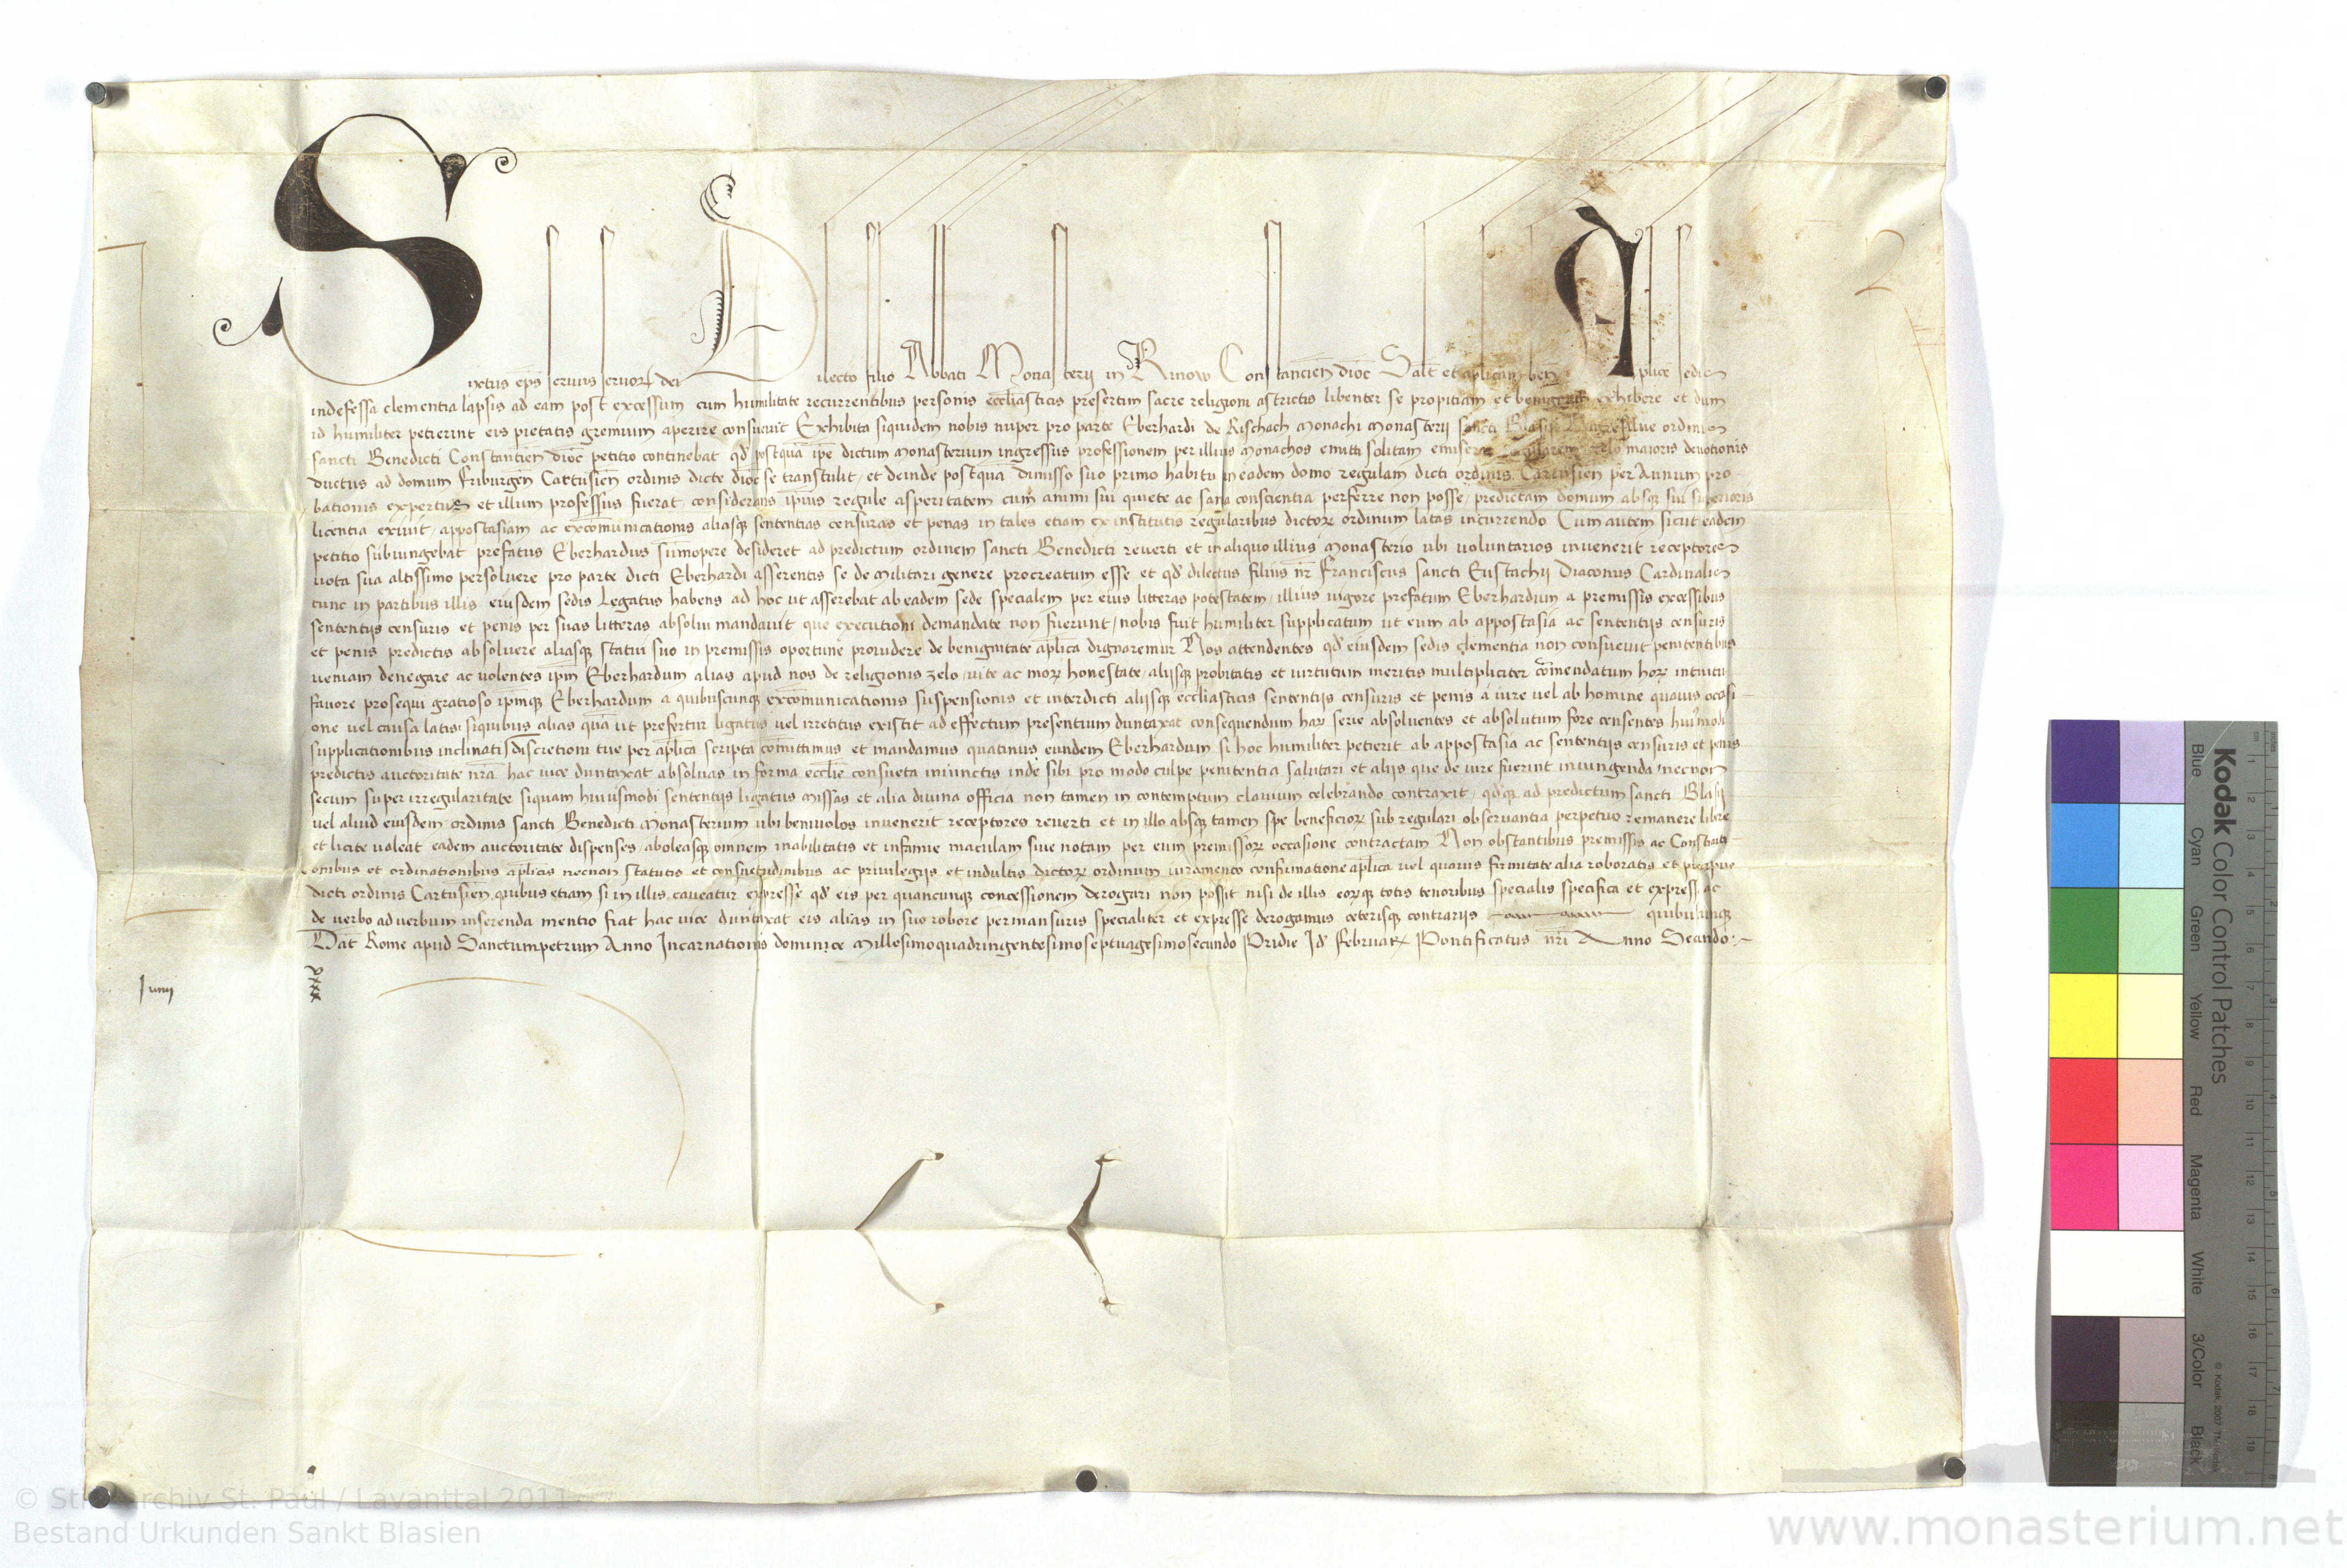 Sixtus ep̄s servus servoꝝ dei Dilecto filio Abbati Monasterij in Rinow Constancień dioc̄ Salt̄ et aplicam beń Aplice sedis
indefessa clementia lapsis ad eam post excessum cum humilitate recurrentibus personis eccliasticis presertim sacre religioni astrictis libenter se propitiam et benignam exhibere et dum
id humiliter petierint eis pietatis gremium aperire consuevit Exhibita siquidem nobis nuper pro parte Eberhardi de Rischach Monachi Monasterij sancti Blasij Nigresilve ordinis
sancti Benedicti Constantień dioc̄ petitio continebat qd̄ postquā ipē dictum Monasterium ingressus professionem per illius Monachos emitti solitam emiserat zelo maioris devotionis
ductus ad domum Friburgeń Cartusień ordinis dicte dioc̄ se transtulit et deinde postquā dimisso suo primo habitu in eadem domo regulam dicti ordinis Cartusień per Annum pro-
bationis expertus et illum professus fuerat considerans ipīus regule asperitatem cum animi sui quiete ac sana conscientia perferre non posse predictam domum absqꝫ sui superioris
licentia exivit appostasiam ac excōmunicationis aliasqꝫ sententias censuras et penas in tales etiam ex institutis regularibus dictoꝝ ordinum latas incurrendo Cum autem sicut eadem
petitio subiungebat prefatus Eberhardus sūmopere desideret ad predictum ordinem sancti Benedicti reverti et in aliquo illius Monasterio ubi voluntarios invenerit receptores
vota sua altissimo persolvere pro parte dicti Eberhardi asserentis se de militari genere procreatum esse et qd̄ dilectus filius nr̄ Franciscus sancti Eustachij Diaconus Cardinalis
tunc in partibus illis eiusdem sedis Legatus habens ad hoc ut asserebat ab eadem sede specialem per eius litteras potestatem illius vigore prefatum Eberhardum a premissis excessibus
sententijs censuris et penis per suas litteras absolvi mandavit que executioni demandate non fuerunt nobis fuit humiliter supplicatum ut eum ab appostasia ac sententijs censuris
et penis predictis absolvere aliasqꝫ statui suo in premissis oportune providere de benignitate aplīca dignaremur Nos attendentes qd̄ eiusdem sedis clementia non consuevit penitentibus
veniam denegare ac volentes ipm̄ Eberhardum alias apud nos de religionis zelo vite ac moꝝ honestate alijsqꝫ probitatis et virtutum meritis multipliciter cōmendatum hoꝝ intuitu
favore prosequi gratioso ipm̄qꝫ Eberhardum a quibuscunqꝫ excōmunicationis suspensionis et interdicti alijsqꝫ eccliasticis sententijs censuris et penis a iure vel ab homine quavis occasi-
one vel causa latis siquibus alias quā ut prefertur ligatus vel irretitus existit ad effectum presentium duntaxat consequendum haꝝ serie absolventes et absolutum fore censentes huiꝰmodi
supplicationibus inclinati discretioni tue per aplīca scripta cōmittimus et mandamus quatinus eundem Eberhardum si hoc humiliter petierit ab appostasia ac sententijs censuris et penis
predictis auctoritate nrā hac vice duntaxat absolvas in forma ecclīe consueta iniunctis inde sibi pro modo culpe penitentia salutari et alijs que de iure fuerint iniungenda necnon
secum super irregularitate siquam huiusmodi sententijs ligatus missas et alia divina officia non tamen in contemptum clavium celebrando contraxit qd̄qꝫ ad predictum sancti Blasij
vel aliud eiusdem ordinis sancti Benedicti Monasterium ubi benivolos invenerit receptores reverti et in illo absqꝫ tamen spe beneficioꝝ sub regulari observantia perpetuo remanere libere
et licite valeat eadem auctoritate dispenses aboleasqꝫ omnem inabilitatis et infamie maculam sive notam per eum premissoꝝ occasione contractam Non obstantibus premissis ac Constituti-
onibus et ordinationibus aplīcis necnon statutis et consuetudinibus ac privilegijs et indultis dictoꝝ ordinum iuramento confirmatione aplīca vel quavis firmitate alia roboratis et precipue
dicti ordinis Cartusień quibus etiam si in illis caveatur expresse qd̄ eis per quancunqꝫ concessionem derogari non possit nisi de illis eoꝝqꝫ totis tenoribus specialis specifica et expressa ac
de verbo ad verbum inserenda mentio fiat hac vice duntaxat eis alias in suo robore permansuris specialiter et expresse derogamus ceterisqꝫ contrarijs quibuscunqꝫ
Dat̄ Rome apud Sanctumpetrum Anno Incarnationis dominice Millesimoquadringentesimoseptuagesimosecundo Pridie Id̄ Februaꝝ Pontificatus nri Anno Secundo
© Stiftsarchiv St. Paul / Lavanttal 2011
Bestand Urkunden Sankt Blasien
www.monasterium.net
Kodak Color Control Patches
Blue Cyan Green Yellow Red Magenta White 3/Color Black
© Kodak, 2007